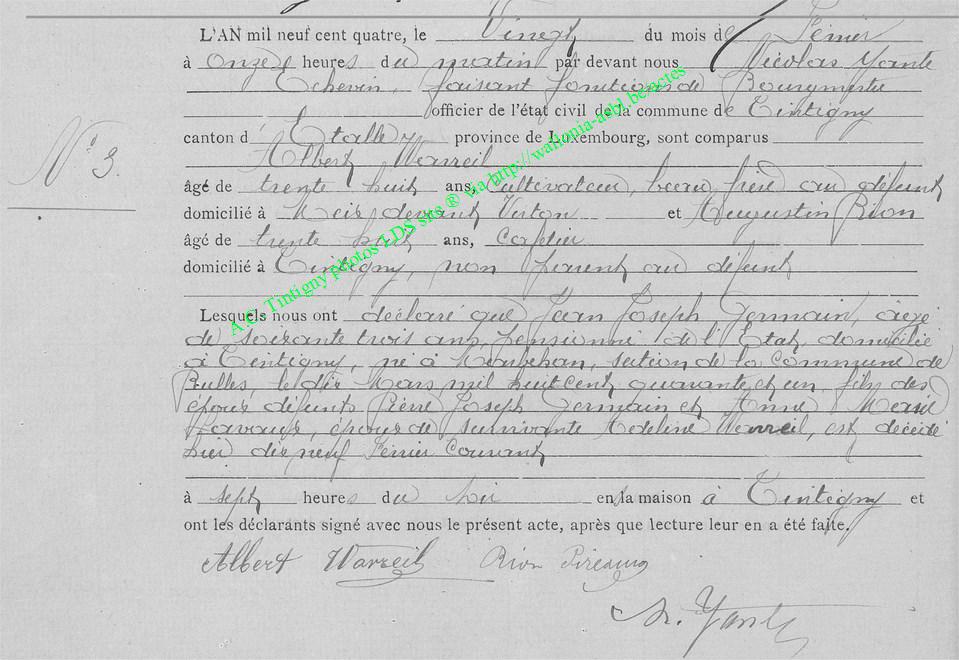 L'AN mil neuf cent quatre, le Vingt du mois de Février
à onze heures du matin par devant nous Nicolas Yante
Echevin faisant fonctions de Bourgmestre
officier de l'état civil de la commune de Tintigny
canton d'Etalle province de Luxembourg, sont comparus
Albert Warzeil
N° 3.
âgé de trente huit ans, cultivateur, beau frère au défunt
domicilié à Meix devant Virton et Augustin Rion
âgé de trente huit ans, Cafetier
domicilié à Tintigny, non parent au défunt
Lesquels nous ont déclaré que Jean Joseph Germain, âgé
de soixante trois ans, pensionné de l'Etat, domicilié
à Tintigny, né à section de la Commune de
Rulles, le dix Mars mil huit cent quarante et un, fils des
époux défunts Pierre Joseph Germain et Anne Marie
époux de survivante Adeline Warzeil, est décédé
hier dix neuf Février Courant
à sept heures du soir en sa maison à Tintigny et
ont les déclarants signé avec nous le présent acte, après que lecture leur en a été faite.
Albert Warzeil Rion
N. Yante
A.G. Tintigny photos LDS site ® via http://wallonia-asbl.be/actes